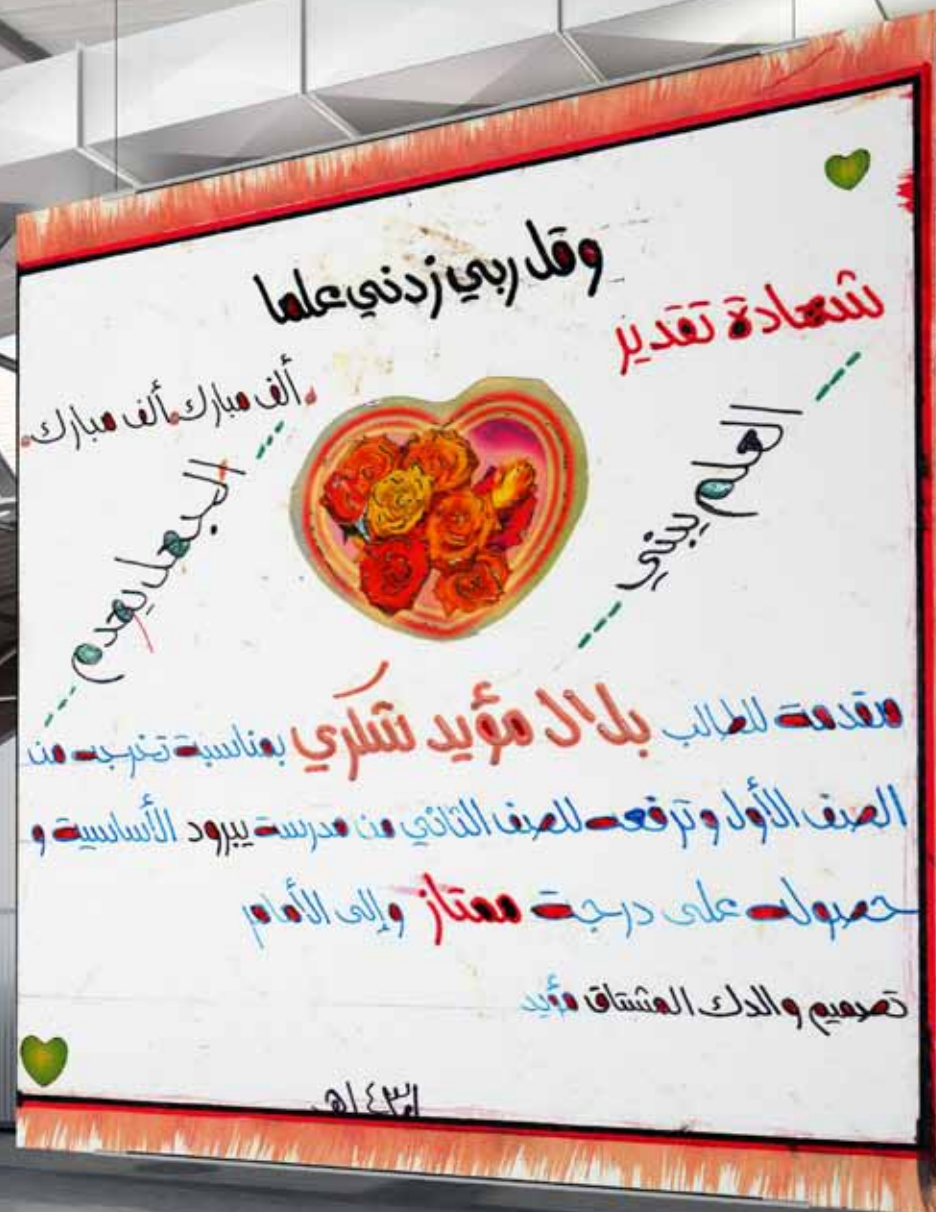 وقل ربي زدني علما
شهادة تقدير
ألف مبارك. ألف مبارك.
العلم يبني
الجهل يهدم
مقدمة للطالب بلال مؤيد شكري بمناسبة تخرجه من
الصف الأول وترفعه للصف الثاني من مدرسة يبرود الأساسية و
حصوله على درجة ممتاز وإلى الأمام
تصميم والدك المشتاق مؤيد